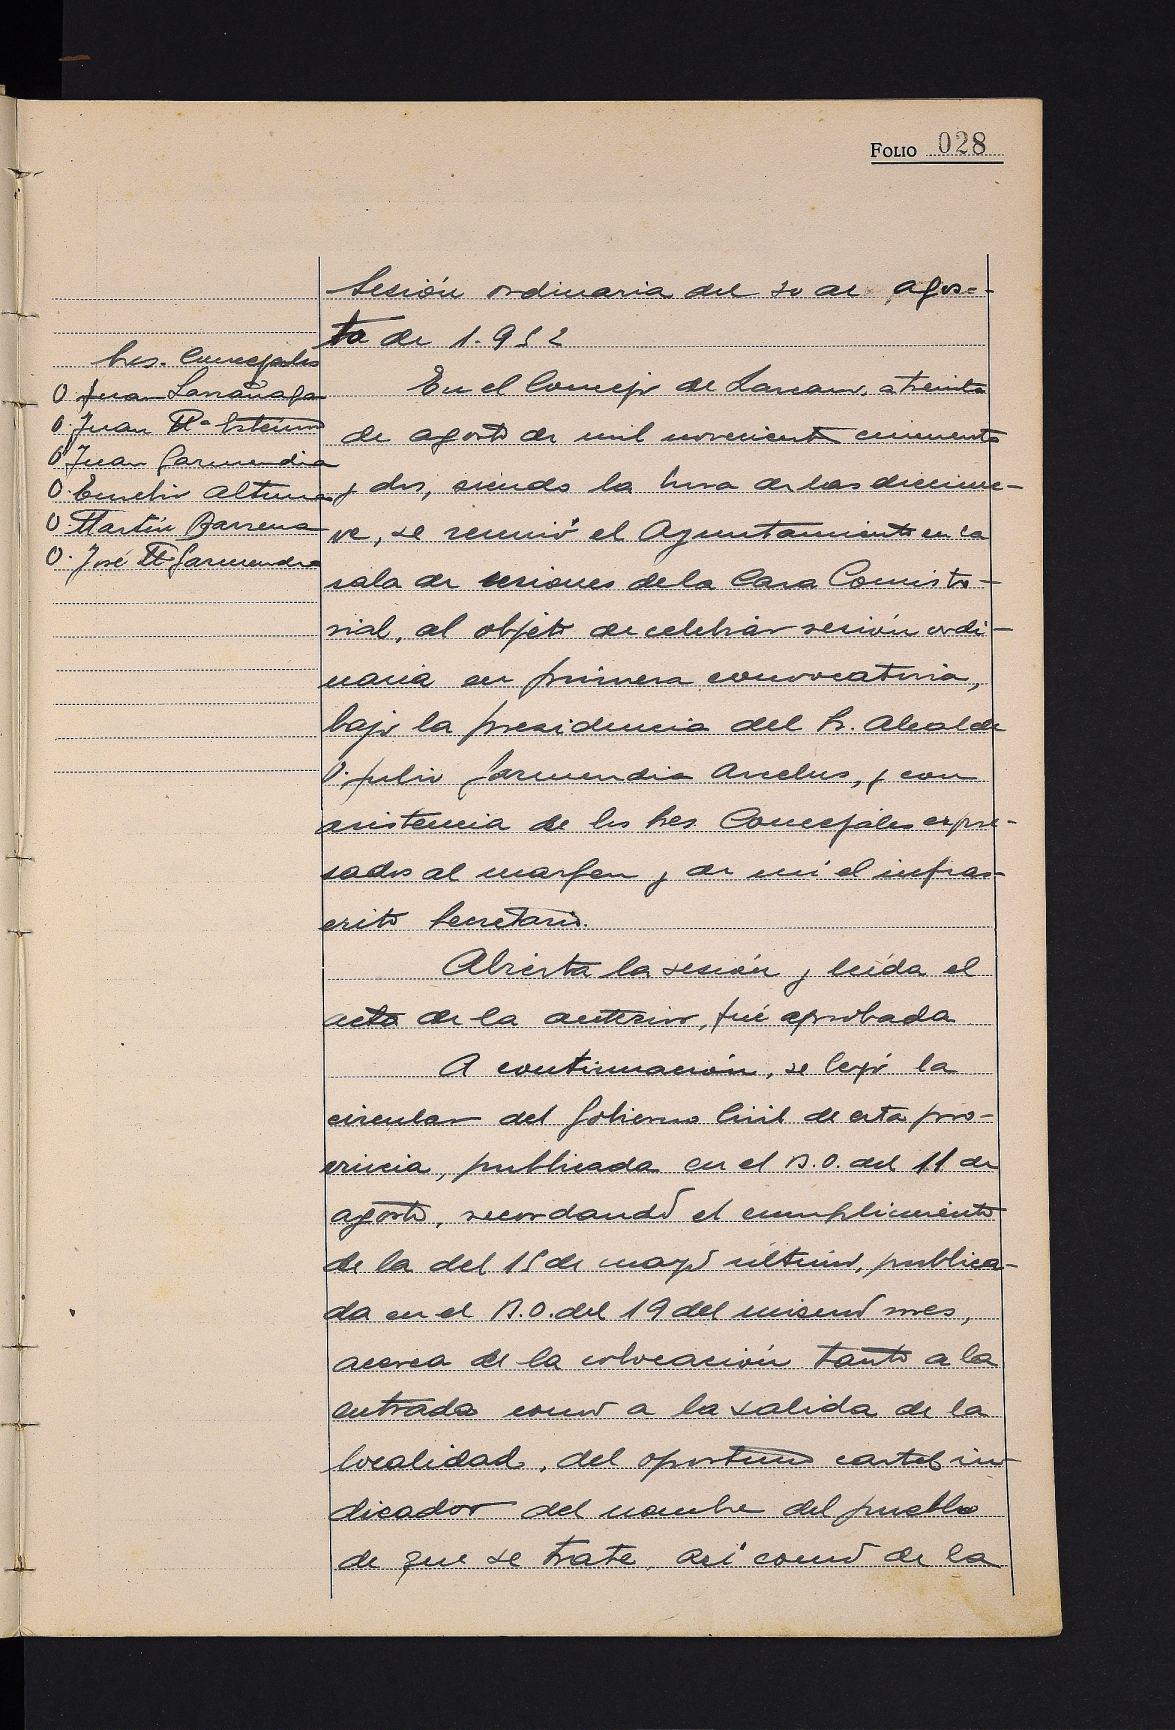 FOLIO 028
Sesión ordinaria del 30 de agos-
to de 1.952
Sres. Concejales
D. Juan Larrañaga
D. Juan Mª
D. Juan Garmendia
D. Eusebio Altuna
D. Martín Barrena
D. José M. Garmendia
En el Concejo de Larraul, a treinta
de agosto de mil novecientos cincuenta
y dos, siendo la hora de las diecinue-
ve, se reunió el Ayuntamiento en la
sala de sesiones de la Casa Consisto-
rial, al objeto de celebrar sesión ordi-
naria en primera convocatoria,
bajo la presidencia del Sr. Alcalde
D. Julio Garmendia Arcelus, y con
asistencia de los Sres Concejales expre-
sados al margen y de mi el infras-
crito Secretario.
Abierta la sesión y leída el
acta de la anterior, fué aprobada
A continuación, se leyó la
circular del Gobierno Civil de esta pro-
vincia, publicada en el B.O. del 11 de
agosto, recordando el cumplimiento
de la del 15 de mayo último, publica-
da en el B.O. del 19 del mismo mes,
acerca de la colocación tanto a la
entrada como a la salida de la
localidad, del oportuno cartel in-
dicador del nombre del pueblo
de que se trate, así como de la